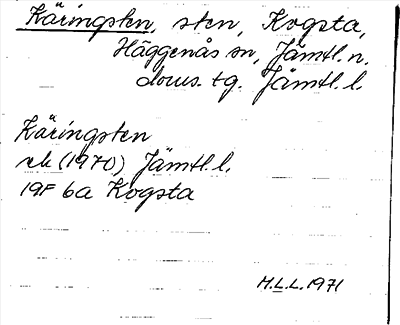 Käringsten, sten, Kogsta,
Häggenås sn, Jämtl. n.
doms. tg. Jämtl. l.
Käringsten
rk (1970) Jämtl. l.
19F 6a Kogsta
M.L.L. 1971